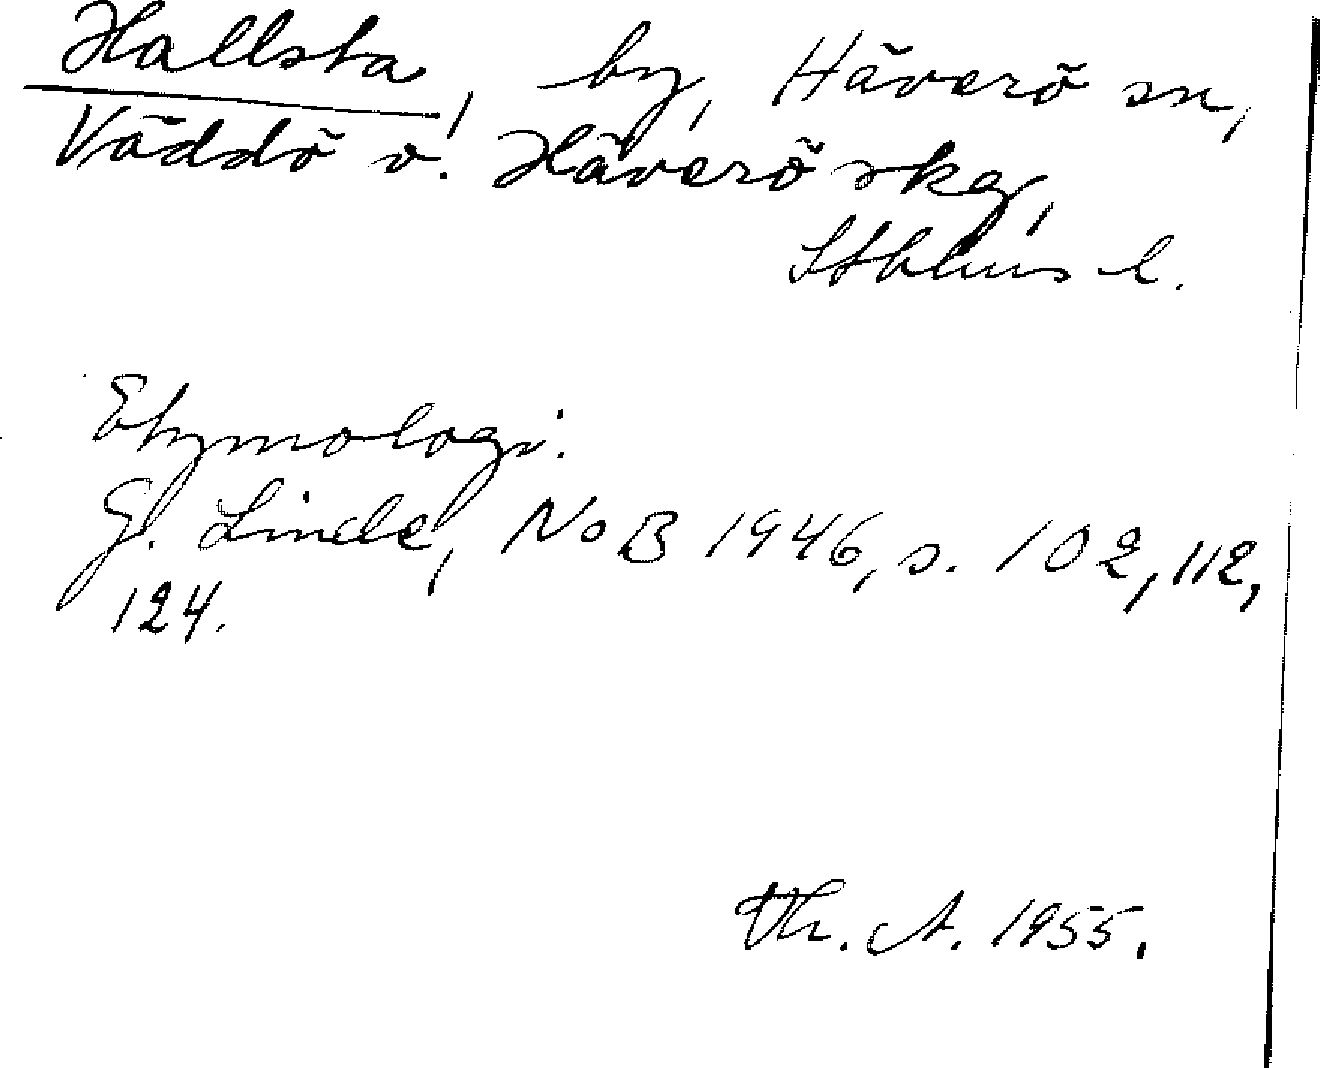 Hallsta, by, Häverö sn,
Väddö o. Häverö skg,
Sthlms l.
Etymologi.
G. Linde, NoB 1946, s. 102, 112,
124.
Th. A. 1955.